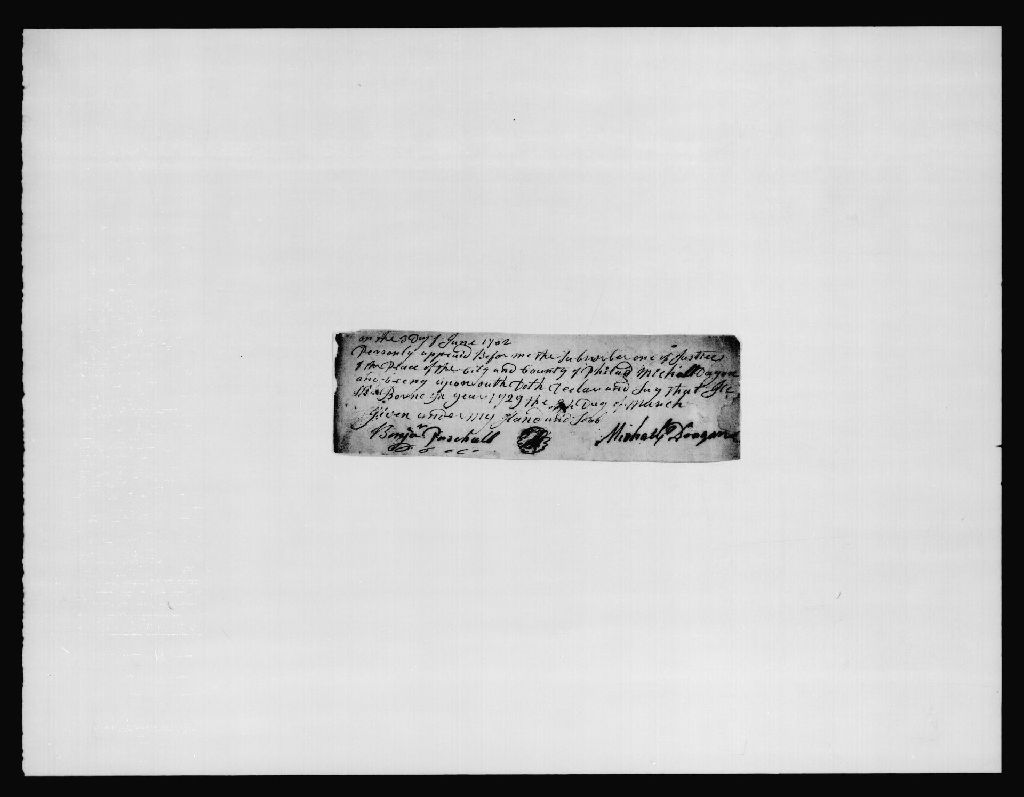 on the 3 Day of June 1782
Personly appeard Before me the Subscriber one of Justices
of the Peace of the City and County of Philad Michall Dogan
and being upon outh Doth Declar and Say that He
Was Borne In year 1729 the Day of March
Given under my Hand and Seal
Benja Paschall
Michall Doogan